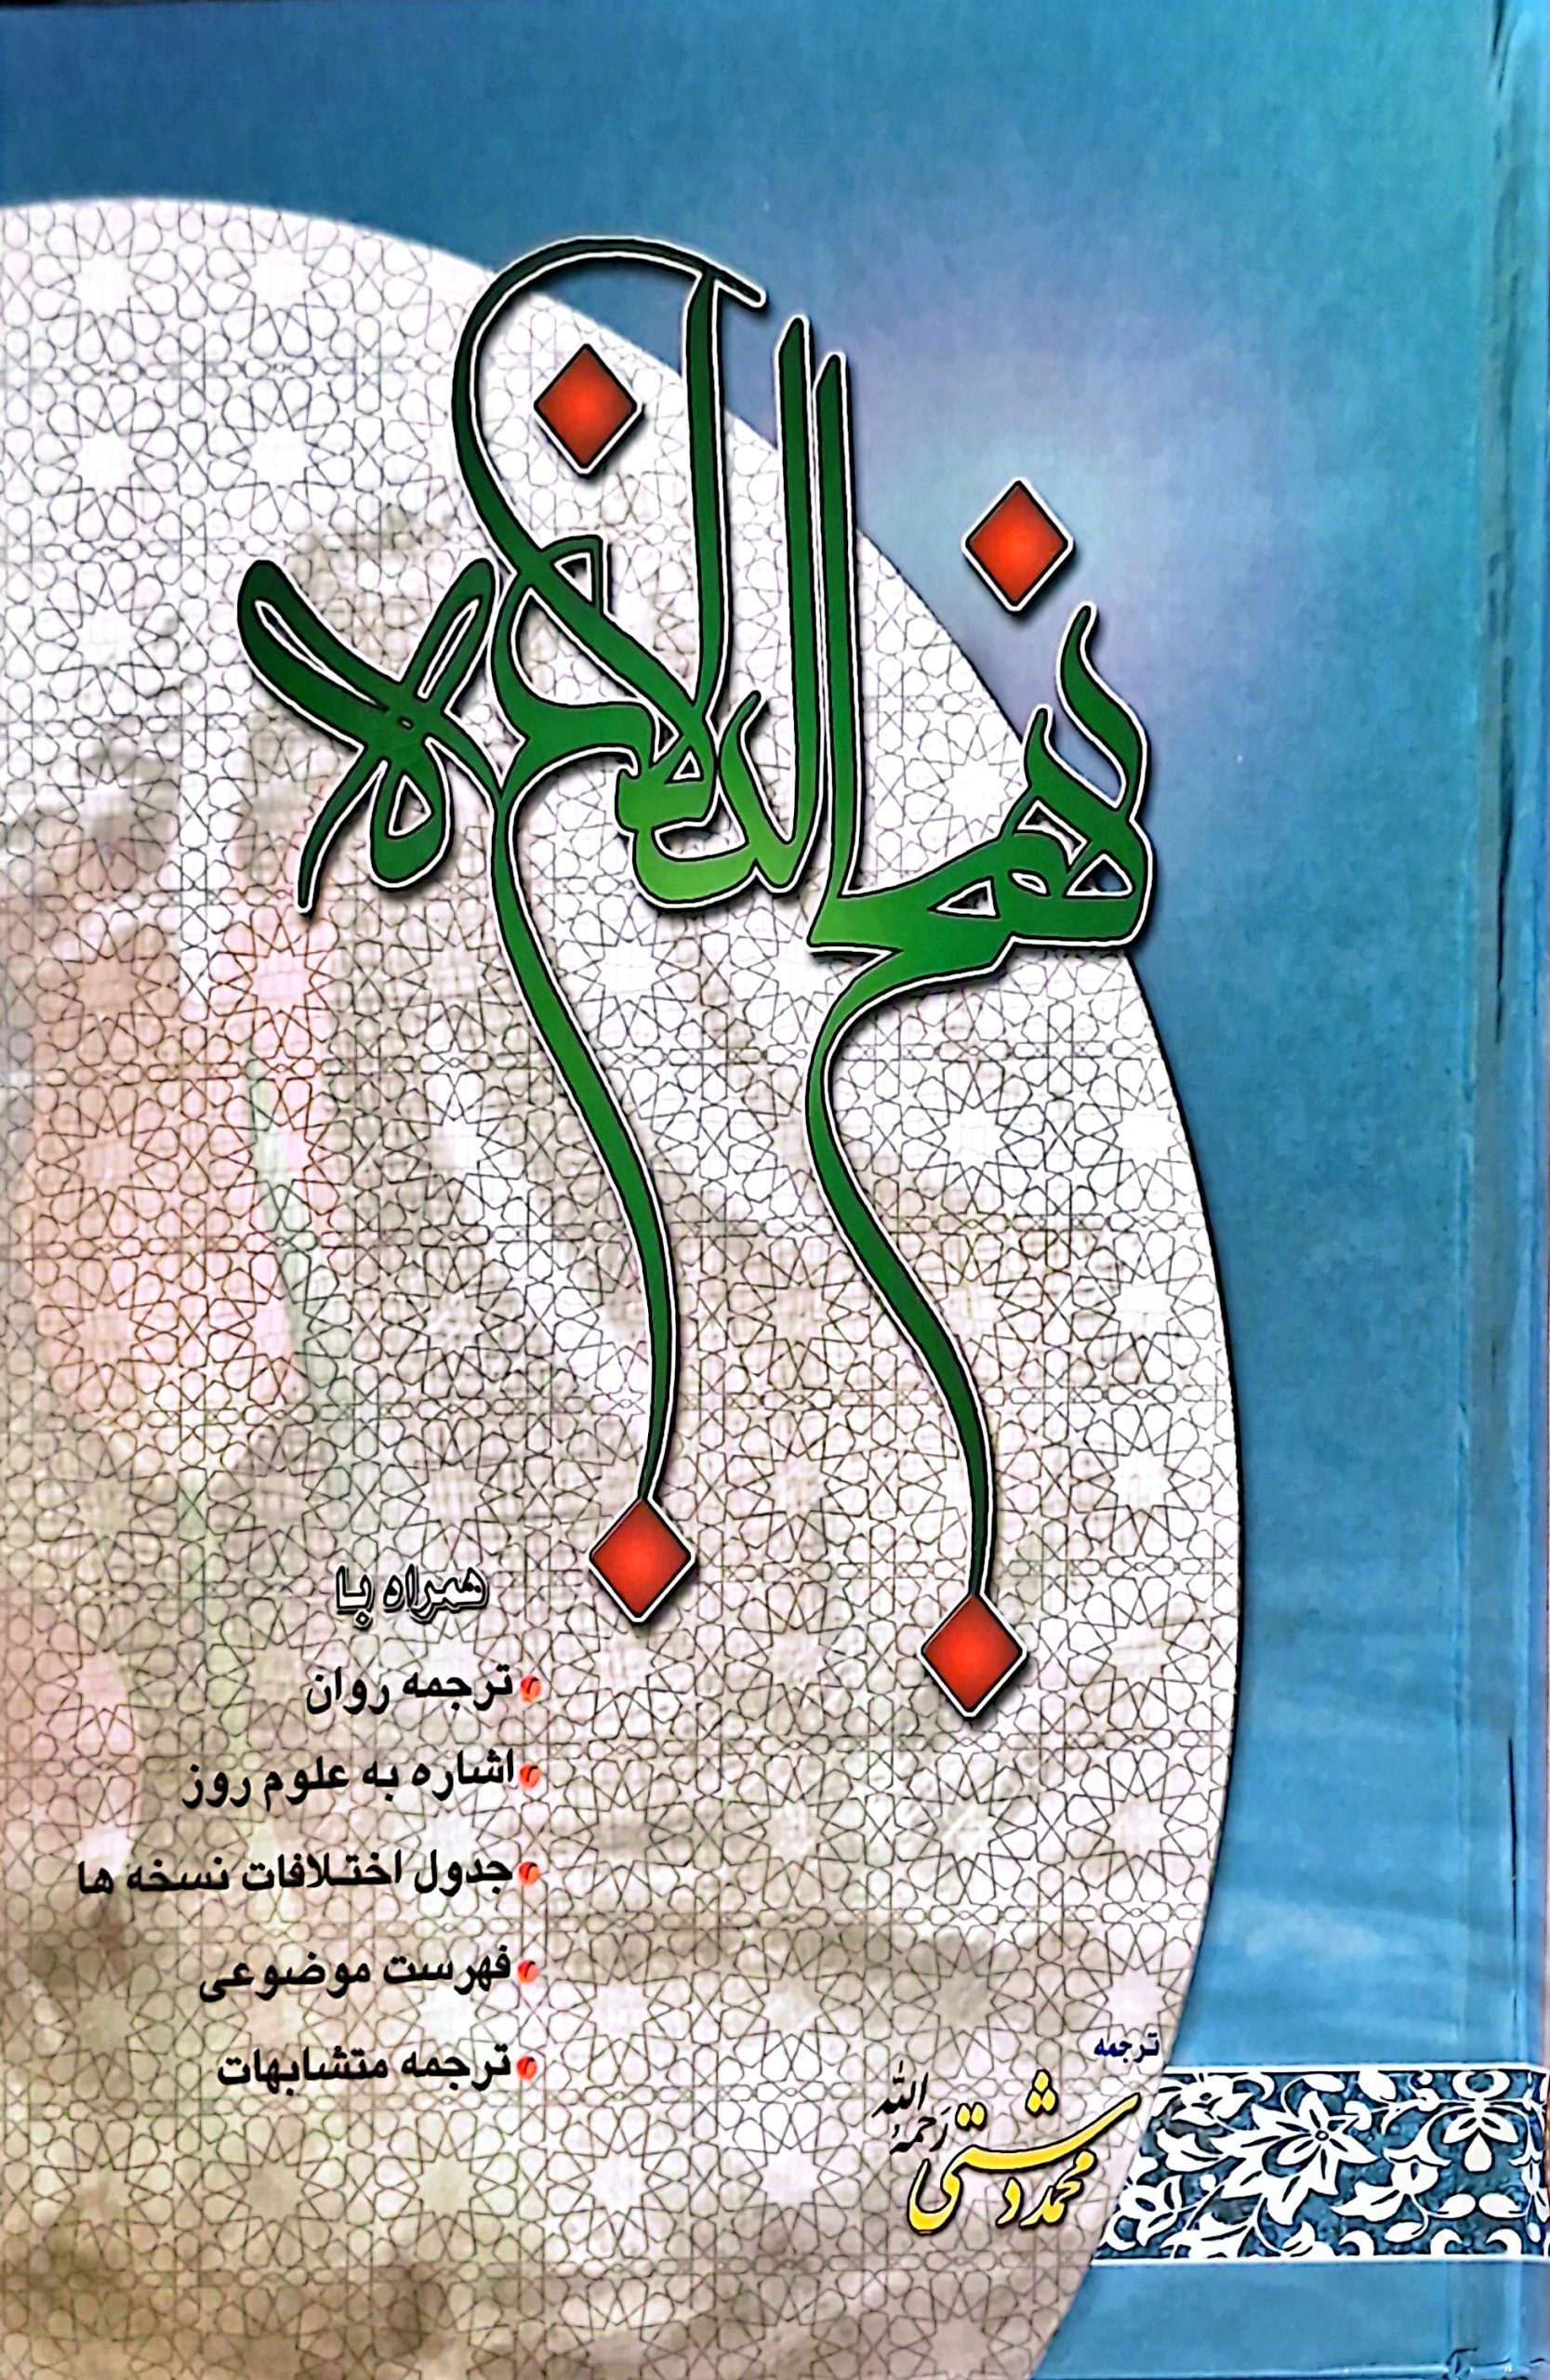 نهج البلاغه
همراه با
ترجمه روان
اشاره به علوم روز
جدول اختلافات نسخه ها
فهرست موضوعی
ترجمه متشابهات
ترجمه
محمد دشتی رَحِمَهُ الله